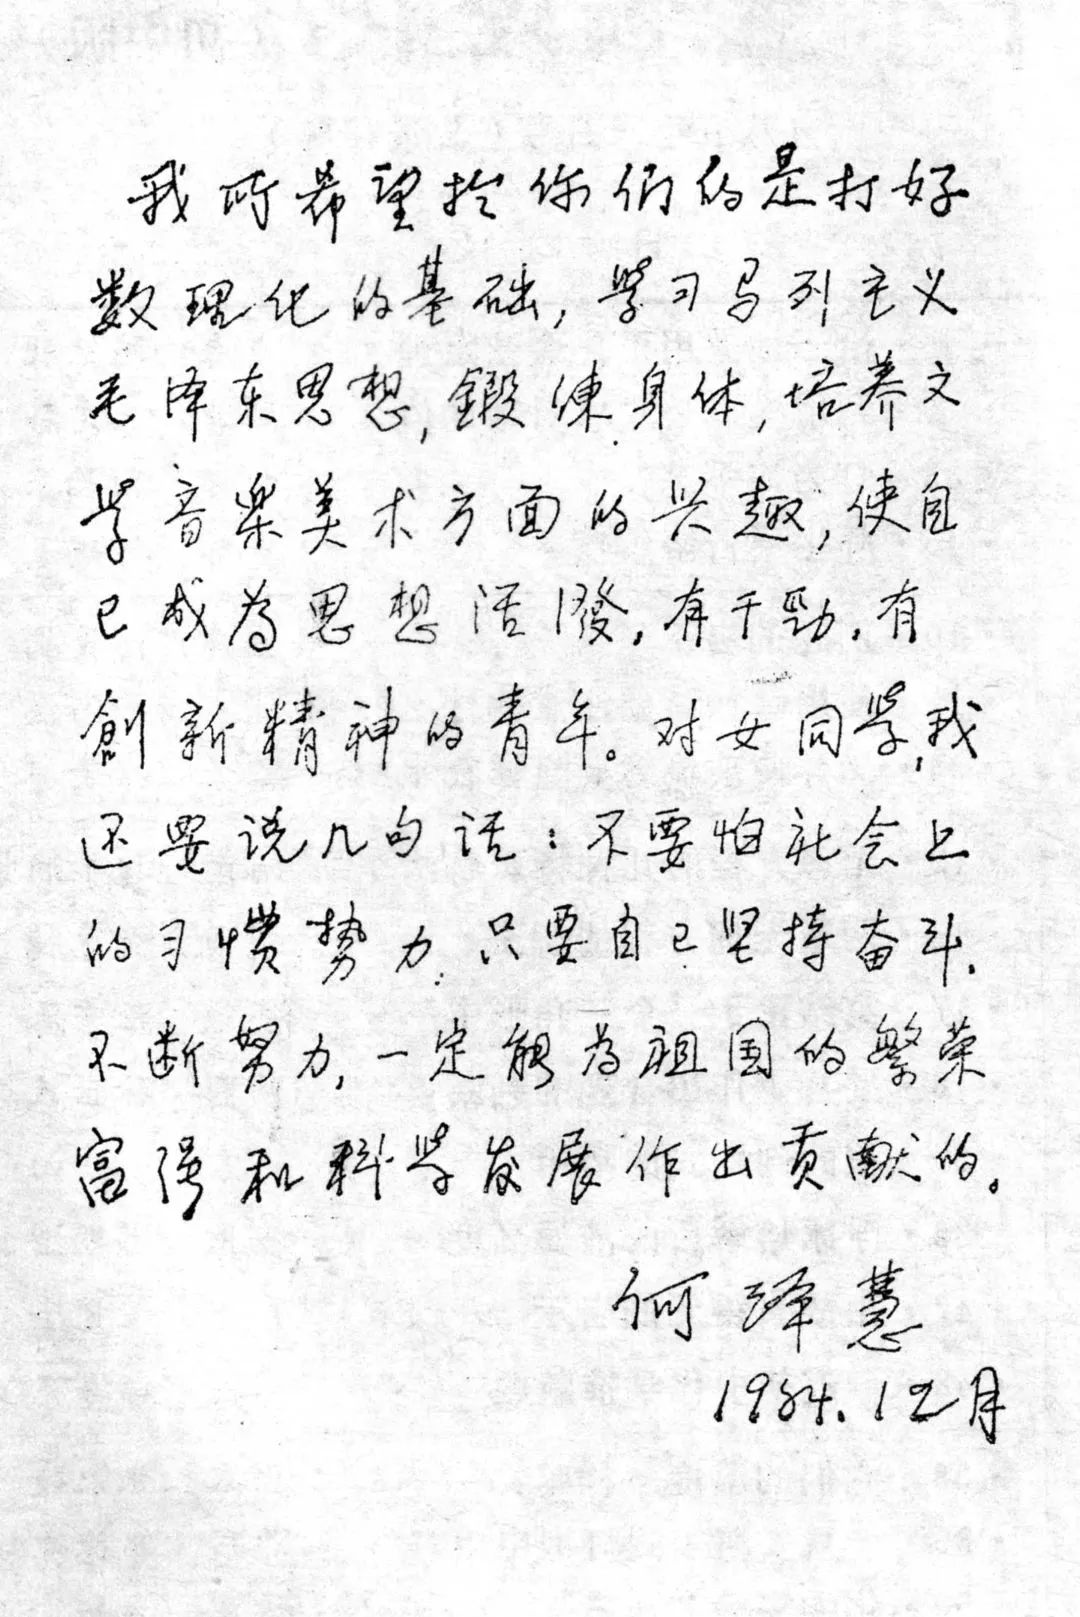 我所希望於你们的是打好
数理化的基础，学习马列主义
毛泽东思想，鍛鍊身体，培养文
学音乐美术方面的兴趣，使自
己成为思想活潑，有干勁，有
創新精神的青年。对女同学，我
还要说几句话：不要怕社会上
的习惯势力，只要自己坚持奋斗，
不断努力，一定能为祖国的繁荣
富强和科学发展作出贡献的。
何泽慧
1984.12月